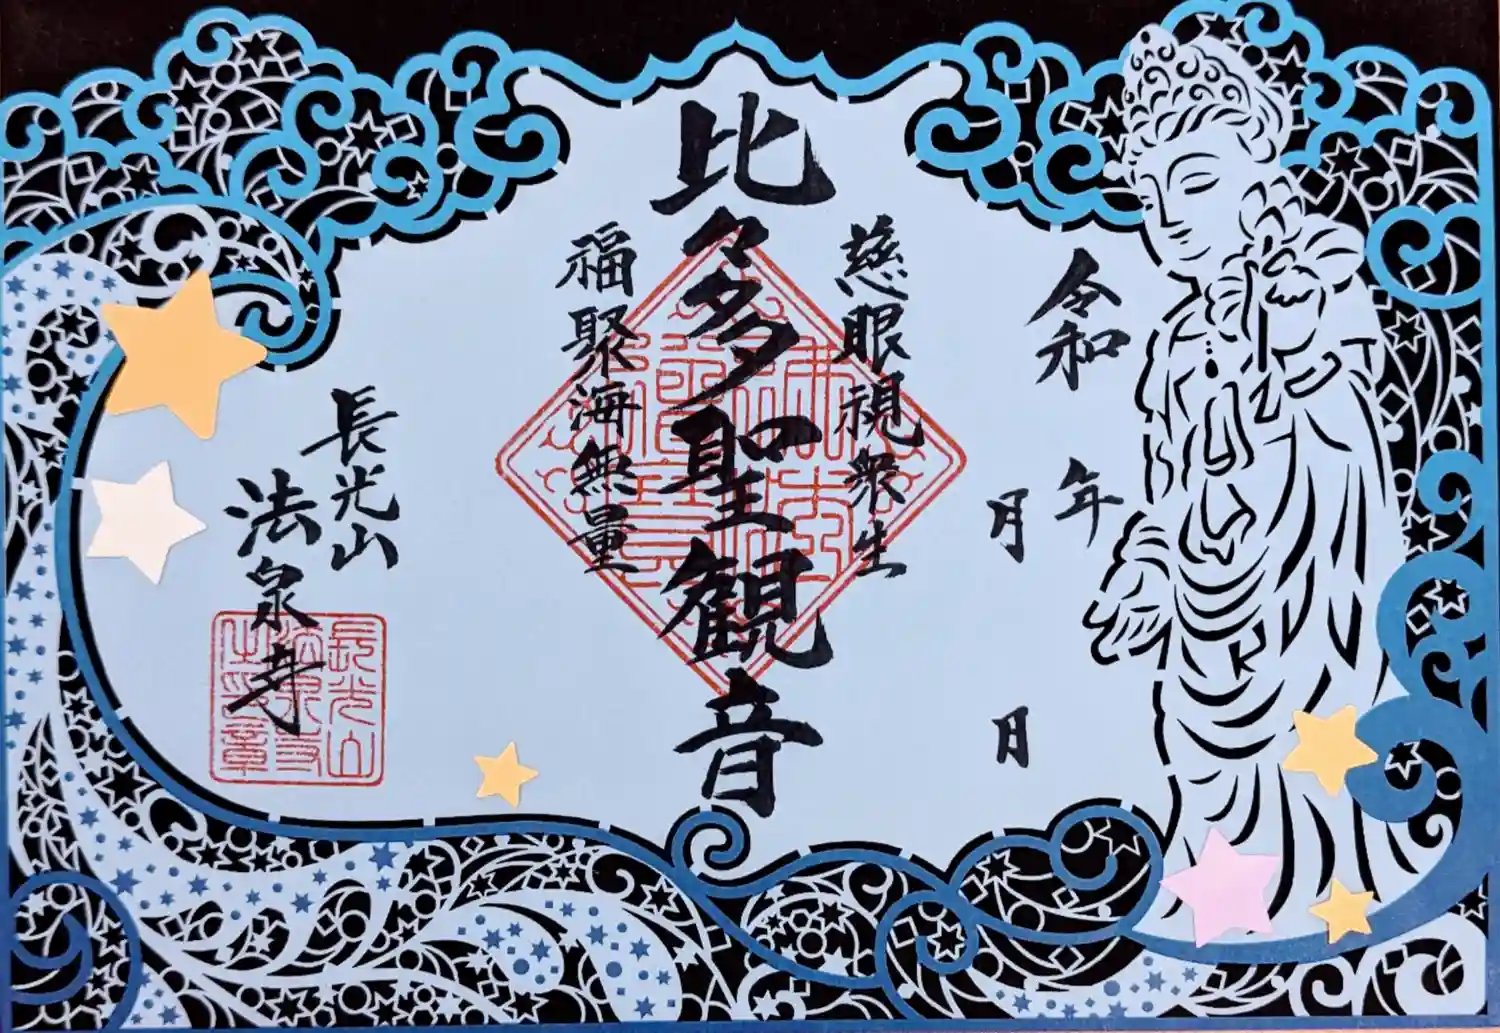 令和 年
月 日
慈眼視衆生
比々多聖観音
福聚海無量
長光山
法泉寺
長光山
法泉寺
之印章